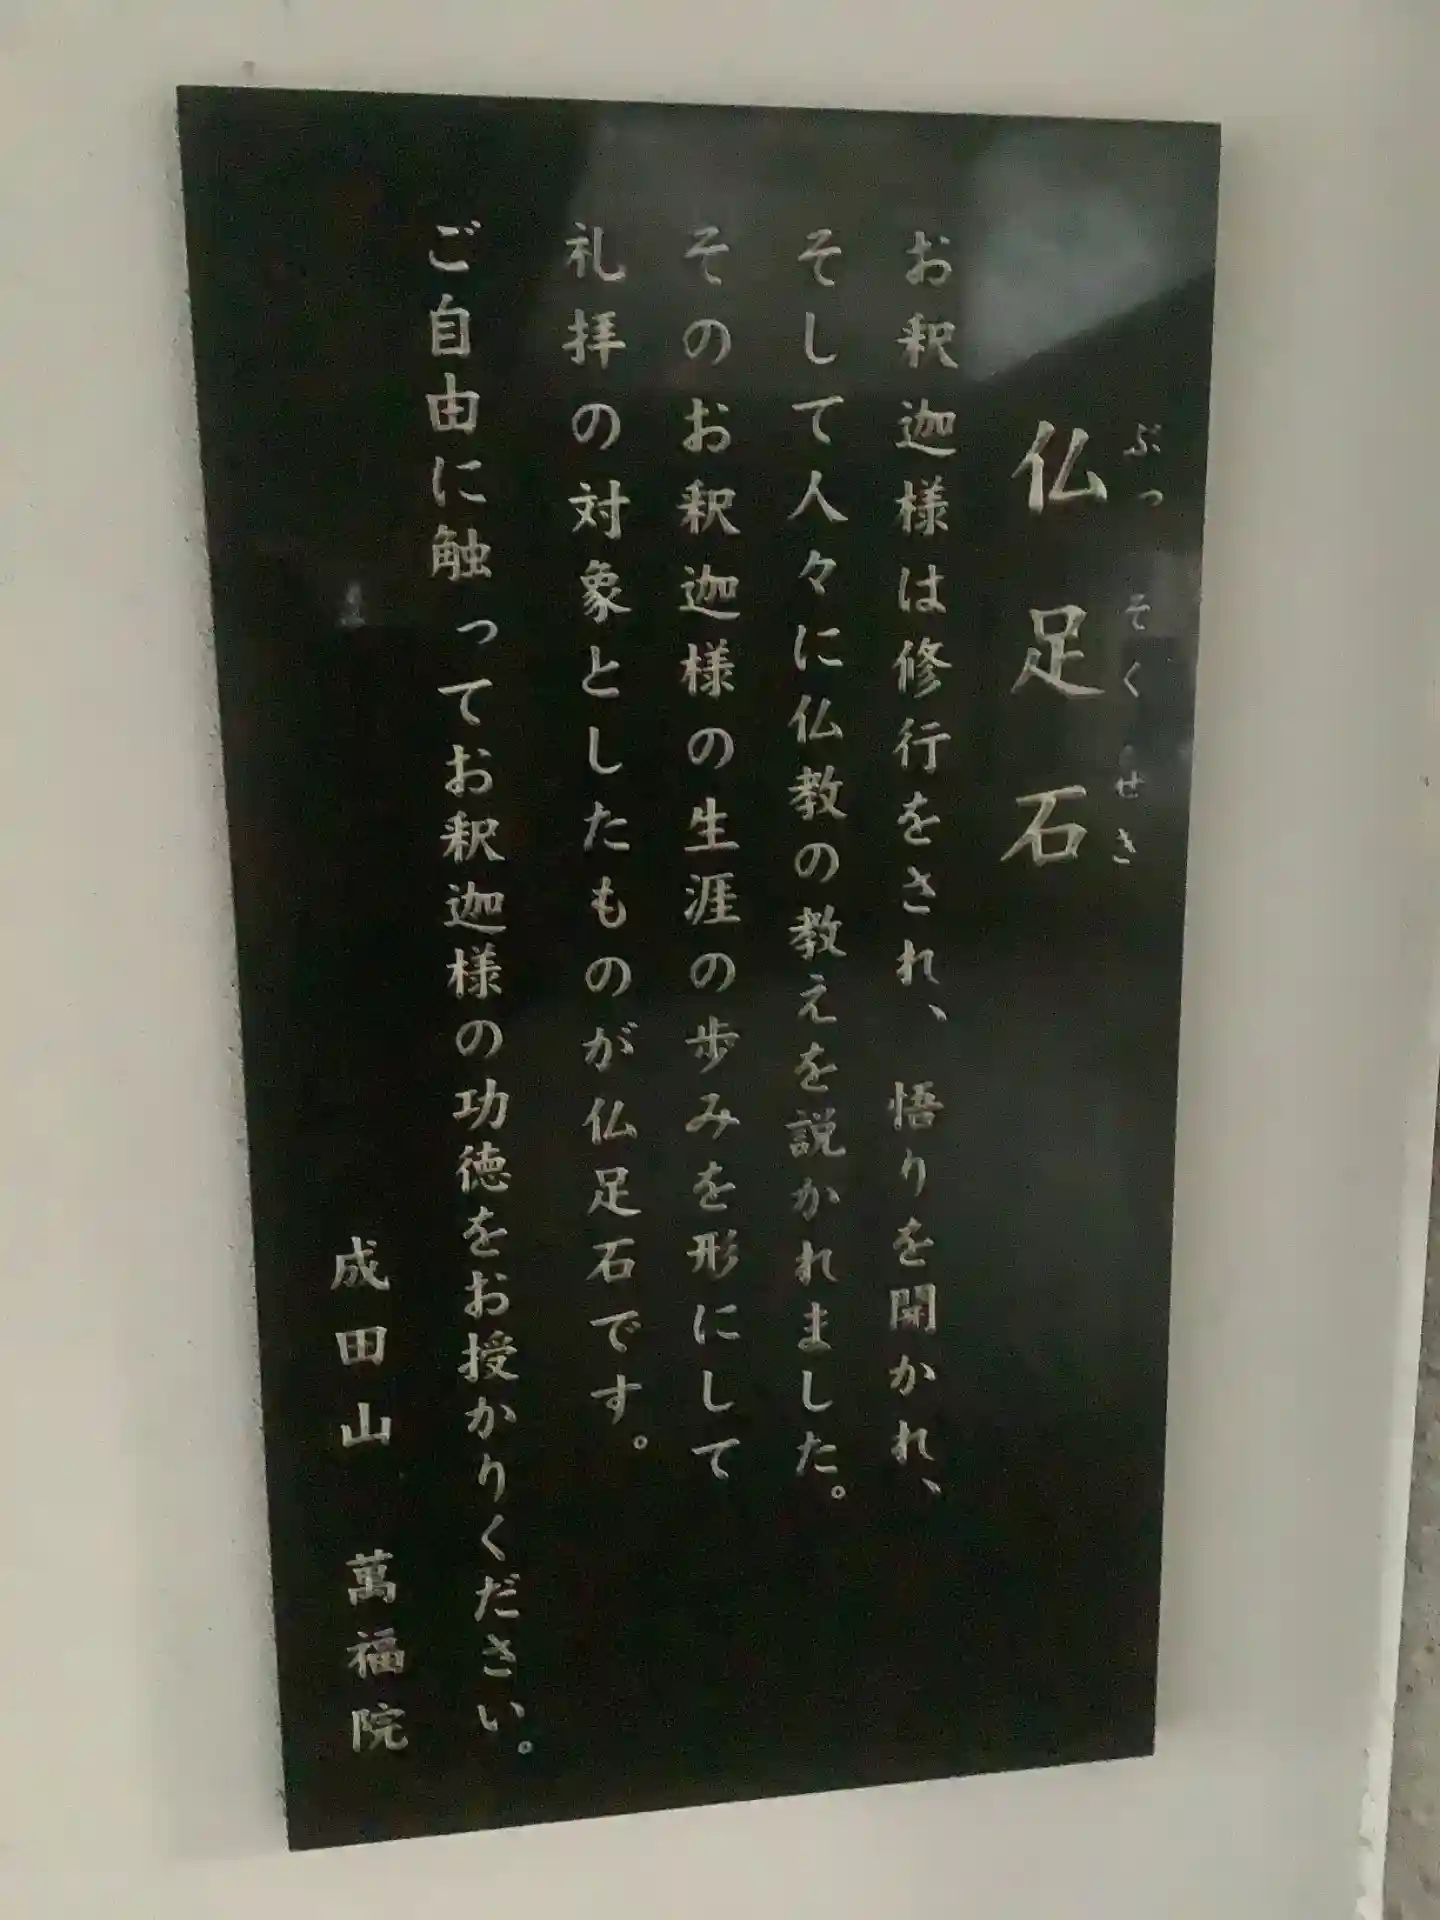 仏足石
ぶっそくせき
お釈迦様は修行をされ、悟りを開かれ、
そして人々に仏教の教えを説かれました。
そのお釈迦様の生涯の歩みを形にして
礼拝の対象としたものが仏足石です。
ご自由に触ってお釈迦様の功徳をお授かりください。
成田山 萬福院